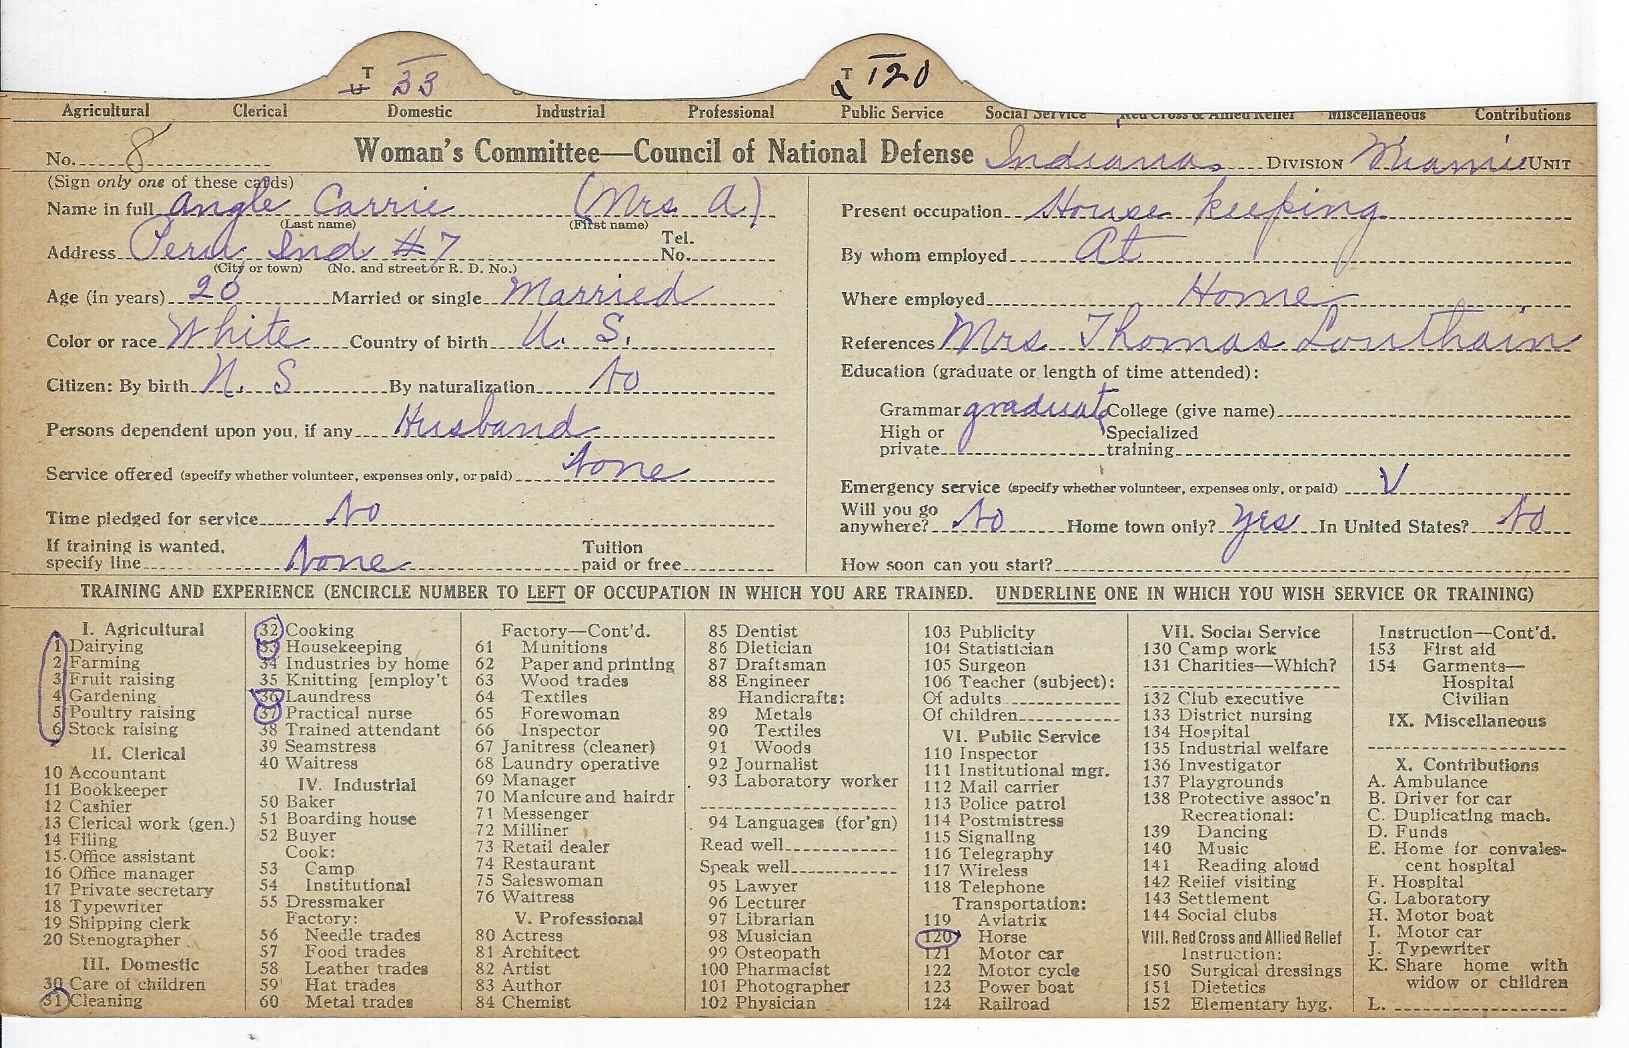 T 33 T 120
U
Agricultural Clerical Domestic Industrial Professional Public Service Social Service Red Cross & Allied Relief Miscellaneous Contributions
No. 8 Woman's Committee—Council of National Defense Indiana DIVISION Miami UNIT
(Sign only one of these cards)
Name in full Angle Carrie (Mrs A)
(Last name) (First name)
Address Peru Ind #7 Tel. No.
(City or town) (No. and street or R. D. No.)
Age (in years) 20 Married or single Married
Color or race White Country of birth U. S.
Citizen: By birth U. S By naturalization No
Persons dependent upon you, if any Husband
Service offered (specify whether volunteer, expenses only, or paid) None
Time pledged for service No
If training is wanted, specify line None Tuition paid or free
Present occupation House keeping
By whom employed At
Where employed Home
References Mrs Thomas Louthain
Education (graduate or length of time attended):
Grammar graduate College (give name)
High or private Specialized training
Emergency service (specify whether volunteer, expenses only, or paid) V
Will you go anywhere? No Home town only? yes In United States? No
How soon can you start?
TRAINING AND EXPERIENCE (ENCIRCLE NUMBER TO LEFT OF OCCUPATION IN WHICH YOU ARE TRAINED. UNDERLINE ONE IN WHICH YOU WISH SERVICE OR TRAINING)
I. Agricultural
1 Dairying
2 Farming
3 Fruit raising
4 Gardening
5 Poultry raising
6 Stock raising
II. Clerical
10 Accountant
11 Bookkeeper
12 Cashier
13 Clerical work (gen.)
14 Filing
15 Office assistant
16 Office manager
17 Private secretary
18 Typewriter
19 Shipping clerk
20 Stenographer
III. Domestic
30 Care of children
31 Cleaning
32 Cooking
33 Housekeeping
34 Industries by home
35 Knitting [employ't
36 Laundress
37 Practical nurse
38 Trained attendant
39 Seamstress
40 Waitress
IV. Industrial
50 Baker
51 Boarding house
52 Buyer
Cook:
53 Camp
54 Institutional
55 Dressmaker
Factory:
56 Needle trades
57 Food trades
58 Leather trades
59 Hat trades
60 Metal trades
Factory—Cont'd.
61 Munitions
62 Paper and printing
63 Wood trades
64 Textiles
65 Forewoman
66 Inspector
67 Janitress (cleaner)
68 Laundry operative
69 Manager
70 Manicure and hairdr
71 Messenger
72 Milliner
73 Retail dealer
74 Restaurant
75 Saleswoman
76 Waitress
V. Professional
80 Actress
81 Architect
82 Artist
83 Author
84 Chemist
85 Dentist
86 Dietician
87 Draftsman
88 Engineer
Handicrafts:
89 Metals
90 Textiles
91 Woods
92 Journalist
93 Laboratory worker
94 Languages (for'gn)
Read well
Speak well
95 Lawyer
96 Lecturer
97 Librarian
98 Musician
99 Osteopath
100 Pharmacist
101 Photographer
102 Physician
103 Publicity
104 Statistician
105 Surgeon
106 Teacher (subject):
Of adults
Of children
VI. Public Service
110 Inspector
111 Institutional mgr.
112 Mail carrier
113 Police patrol
114 Postmistress
115 Signaling
116 Telegraphy
117 Wireless
118 Telephone
Transportation:
119 Aviatrix
120 Horse
121 Motor car
122 Motor cycle
123 Power boat
124 Railroad
VII. Social Service
130 Camp work
131 Charities—Which?
132 Club executive
133 District nursing
134 Hospital
135 Industrial welfare
136 Investigator
137 Playgrounds
138 Protective assoc'n
Recreational:
139 Dancing
140 Music
141 Reading aloud
142 Relief visiting
143 Settlement
144 Social clubs
VIII. Red Cross and Allied Relief
Instruction:
150 Surgical dressings
151 Dietetics
152 Elementary hyg.
Instruction—Cont'd.
153 First aid
154 Garments—
Hospital
Civilian
IX. Miscellaneous
X. Contributions
A. Ambulance
B. Driver for car
C. Duplicating mach.
D. Funds
E. Home for convales-
cent hospital
F. Hospital
G. Laboratory
H. Motor boat
I. Motor car
J. Typewriter
K. Share home with
widow or children
L.